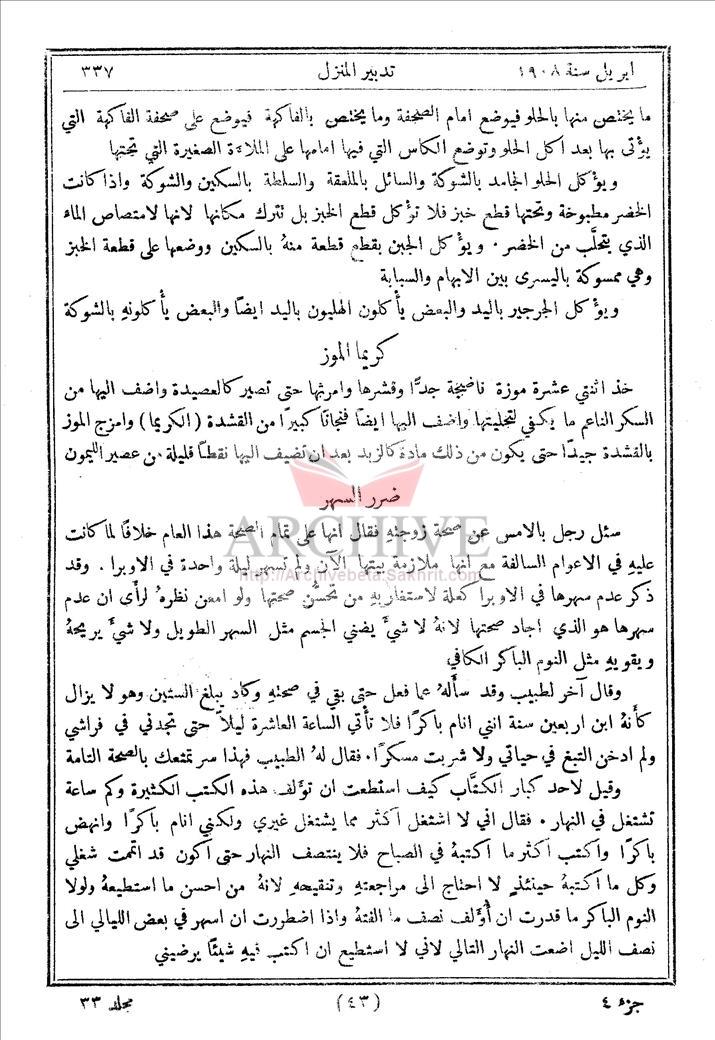 ابريل سنة ١٩٠٨ تدبير المنزل ٣٣٧
ما يختص منها بالحلو فيوضع امام الصحفة وما يختص بالفاكهة فيوضع على صحفة الفاكهة التي
يؤْتى بها بعد اكل الحلو وتوضع الكاس التي فيها امامها على الملاءة الصغيرة التي تحتها
ويؤكل الحلو الجامد بالشوكة والسائل بالملعقة والسلطة بالسكين والشوكة واذا كانت
الخضر مطبوخة وتحتها قطع خبز فلا تؤكل قطع الخبز بل تترك مكانها لانها لامتصاص الماء
الذي يتحلَّب من الخضر . ويؤكل الجبن بقطع قطعة منهُ بالسكين ووضعها على قطعة الخبز
وهي ممسوكة باليسرى بين الابهام والسبابة
ويؤكل الجرجير باليد والبعض يأكلون الهليون باليد ايضًا والبعض يأكلونهِ بالشوكة
كريما الموز
خذ اثنتي عشرة موزة ناضجة جدًّا وقشرها وامرثها حتى تصير كالعصيدة واضف اليها من
السكر الناعم ما يكفي لتحليتها واضف اليها ايضًا فنجانًا كبيرًا من القشدة (الكريما) وامزج الموز
بالقشدة جيدًا حتى يكون من ذلك مادة كالزبد بعد ان تضيف اليها نقطًا قليلة من عصير الليمون
ضرر السهر
سئل رجل بالامس عن صحة زوجتهِ فقال انها على تمام الصحة هذا العام خلافًا لما كانت
عليهِ في الاعوام السالفة مع انها ملازمة بيتها الآن ولم تسهر ليلة واحدة في الاوبرا . وقد
ذكر عدم سهرها في الاوبرا كعلة لاستغرابهِ من تحسُّن صحتها ولو امعن نظرهُ لرأى ان عدم
سهرها هو الذي اجاد صحتها لانهُ لا شيءَ يضني الجسم مثل السهر الطويل ولا شيءَ يريحهُ
ويقويهِ مثل النوم الباكر الكافي
وقال آخر لطبيب وقد سأَلهُ عما فعل حتى بقي في صحتهِ وكاد يبلغ الستين وهو لا يزال
كأَنهُ ابن اربعين سنة انني انام باكرًا فلا تأتي الساعة العاشرة ليلاً حتى تجدني في فراشي
ولم ادخن التبغ في حياتي ولا شربت مسكرًا . فقال لهُ الطبيب فهذا سر تمتعك بالصحة التامة
وقيل لاحد كبار الكتَّاب كيف استطعت ان تؤلف هذه الكتب الكثيرة وكم ساعة
تشتغل في النهار . فقال اني لا اشتغل اكثر مما يشتغل غيري ولكنني انام باكرًا وانهض
باكرًا واكتب اكثر ما اكتبهُ في الصباح فلا ينتصف النهار حتى اكون قد اتممت شغلي
وكل ما اكتبهُ حينئذٍ لا احتاج الى مراجعتهِ وتنقيحهِ لانهُ من احسن ما استطيعهُ ولولا
النوم الباكر ما قدرت ان أُؤلف نصف ما الفتهُ واذا اضطررت ان اسهر في بعض الليالي الى
نصف الليل اضعت النهار التالي لاني لا استطيع ان اكتب فيهِ شيئًا يرضيني
جزء ٤ (٤٣) مجلد ٣٣
ARCHIVE
http://Archivebeta.Sakhrit.com